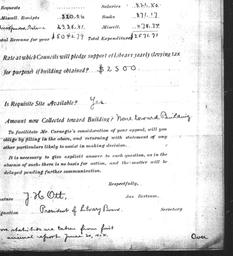 Requests Salaries
Miscell. Receipts Books
Miscell.
Total Revenue for year $5047.29 Total Expenditure $2572.91
Rate at which Councils will pledge support of Library yearly
for purposes if building obtained? $2500
Is Requisite Site Available? Yes
Amount now Collected toward Building? None toward Building
To facilitate Mr Carnegie's consideration of your appeal, will you
oblige by filling in the above, and returning with statement of any
other particulars likely to assist in making decision.
It is necessary to give explicit answer to each question, as in the
absence of such there is no basis for action, and the matter will be
delayed pending further communication.
Respectfully,
J H Ott, Jas Bertram,
President of Library Board. Secretary
are taken from first
annual report June 30,
Over